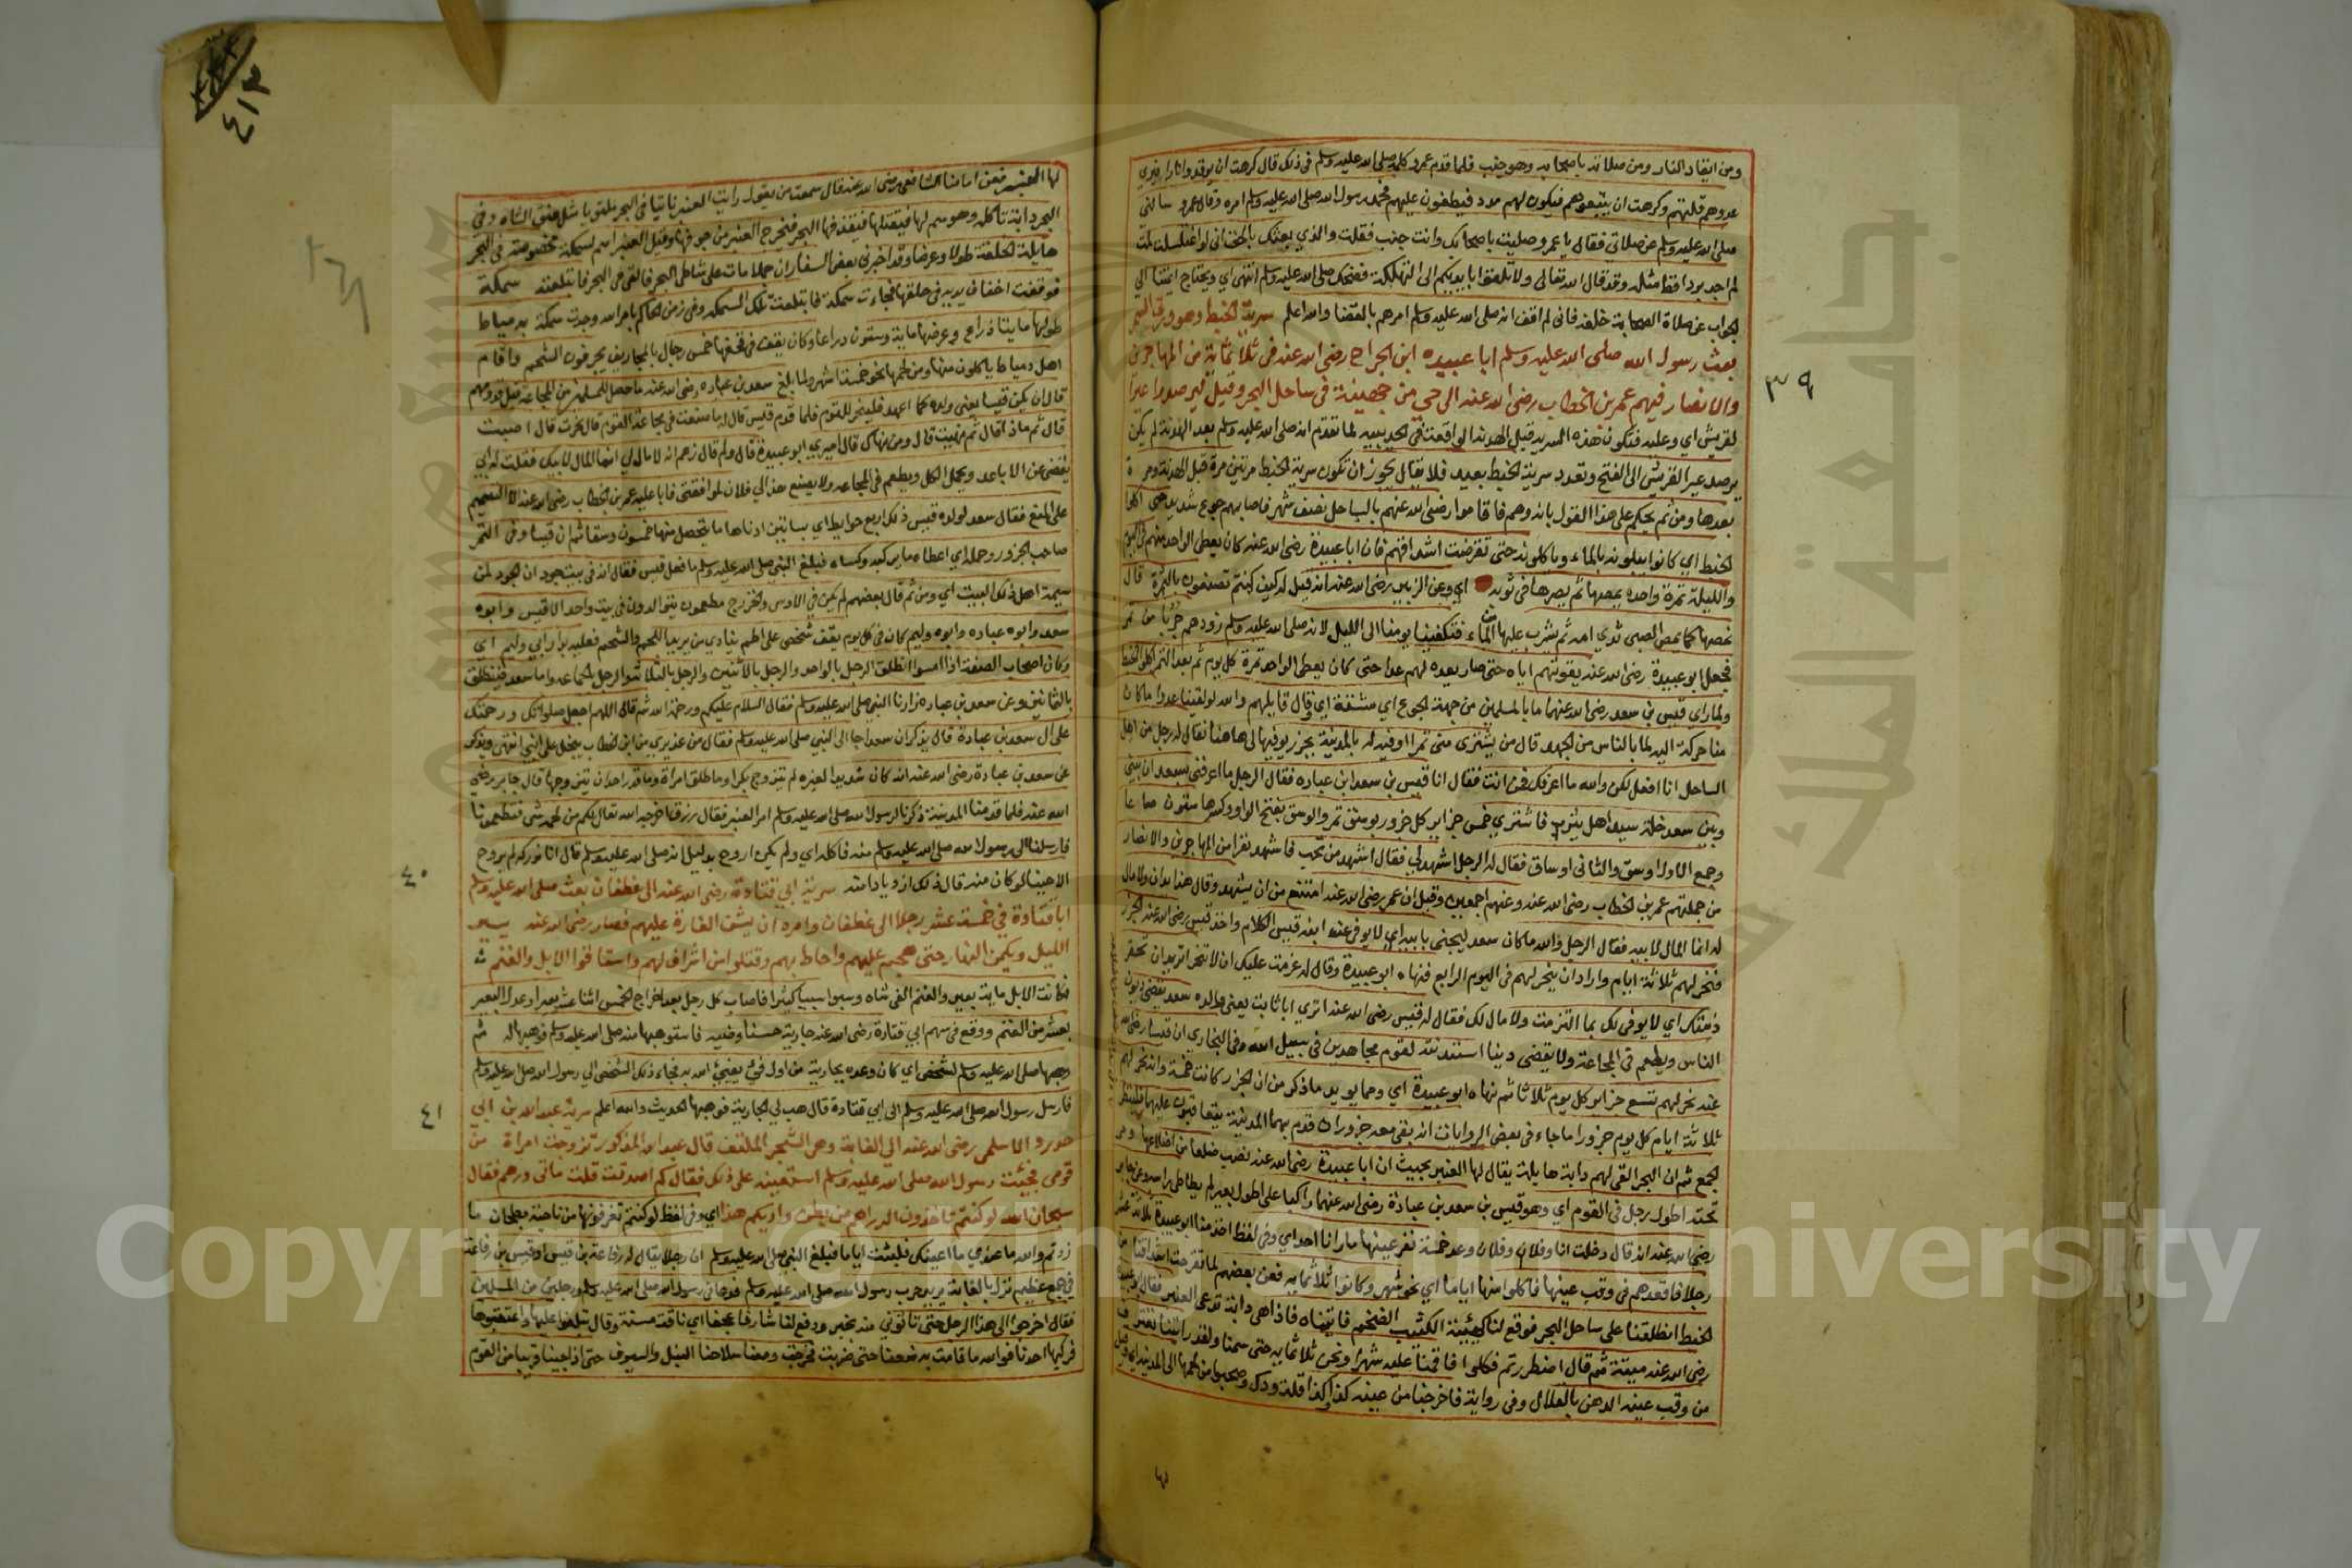 ومن ايقاد النار ومن صلاته باصحابه وهو جنب فلما قدم عمرو كلمه صلى الله عليه وسلم في ذلك قال كرهت ان يوقدوا نارا فيري
عدوهم قلتهم وكرهت ان يتبعوهم فيكون لهم مدد فيعطفون عليهم فحمد رسول الله صلى الله عليه وسلم امره وقال عمرو سالني
صلى الله عليه وسلم عن صلاتي فقال يا عمرو صليت باصحابك وانت جنب فقلت والذي بعثك بالحق اني لو اغتسلت لمت
لم اجد بردا قط مثله وقد قال الله تعالى ولا تلقوا بايديكم الى التهلكة فضحك صلى الله عليه وسلم انتهى اي ويحتاج ايمتنا الي
الجواب عن صلاة الصحابة خلفه فاني لم اقف انه صلى الله عليه وسلم امرهم بالقضا والله اعلم سرية الخبط وهو ورق السمر
بعث رسول الله صلى الله عليه وسلم ابا عبيده ابن الجراح رضى الله عنه في ثلاثمائة من المهاجرين
والانصار فيهم عمر بن الخطاب رضى الله عنه الى حي من جهينة في ساحل البحر وقيل ليرصدوا عيرا
لقريش اي وعليه فتكون هذه السريه قبل الهدنه الواقعة في الحديبيه لما تقدم انه صلى الله عليه وسلم بعد الهدنة لم يكن
يرصد عير القريش الى الفتح وتعدد سرية الخبط بعيد فلا يقال يجوز ان تكون سرية الخبط مرتين مرة قبل الهدنة ومرة
بعدها ومن ثم يحكم على هذا القول بانه وهم فاقاموا رضى الله عنهم بالساحل نصف شهر فاصابهم جوع شديد حتى اكلوا
الخبط اي كانوا يبلونه بالماء وياكلونه حتى تقرحت اشداقهم فان ابا عبيدة رضى الله عنه كان يعطى الواحد منهم في اليوم
والليلة تمرة واحده يمصها ثم يصرها في ثوبه اي وعن الزبير رضى الله عنه انه قيل له كيف كنتم تصنعون بالتمرة قال
نمصها كما يمص الصبى ثدي امه ثم نشرب عليها الماء فتكفينا يومنا الى الليل لانه صلى الله عليه وسلم زودهم جرابا من تمر
فجعل ابو عبيدة رضى الله عنه يقوتهم اياه حتى صار يعده لهم عدا حتى كان يعطى الواحد تمرة كل يوم ثم بعد التمر اكلوا الخبط
ولما راى قيس بن سعد رضى الله عنهما ما بالمسلمين من جهد الجوع اي مشقته اي وقال قايلهم والله لو لقينا عدوا ما كان
منا حركة اليه لما بالناس من الجهد قال من يشتري منى تمرا اوفيه له بالمدينة بجزر يوفيها لى هاهنا فقال له رجل من اهل
الساحل انا افعل لكن والله ما اعرفك فمن انت فقال انا قيس بن سعد ابن عباده فقال الرجل ما اعرفني بسعد ان بينى
وبين سعد خلة سيد اهل يثرب فاشترى خمس جزاير كل جزور بوسق تمر والوسق بفتح الواو وكسرها ستون صاعا
وجمع الاول اوسق والثانى اوساق فقال له الرجل اشهد لي فقال اشهد من تحب فاشهد نفرا من المهاجرين والانصار
من جملتهم عمر بن الخطاب رضى الله عنه وعنهم اجمعين وقيل ان عمر رضى الله عنه امتنع من ان يشهد وقال هذا يدان ولا مال
له انما المال لابيه فقال الرجل والله ما كان سعد ليخنى بابنه اي لا يوفى عنه ابنه قيس الكلام واخذ قيس رضى الله عنه الجزر
فنحر لهم ثلاثة ايام واراد ان ينحر لهم في اليوم الرابع فنهاه ابو عبيدة وقال له عزمت عليك ان لا تنحر اتريد ان تخفر
ذمتك اي لا يوفى لك بما التزمت ولا مال لك فقال له قيس رضى الله عنه اترى ابا ثابت يعني والده سعد يقضى ديون
الناس ويطعم في المجاعة ولا يقضى دينا استدنته لقوم مجاهدين في سبيل الله وفي البخاري ان قيسا رضى الله
عنه نحر لهم تسع جزاير كل يوم ثلاثا ثم نهاه ابو عبيدة اي ومما يويد ما ذكر من ان الجزر كانت خمسة وانه نحر لهم
ثلاثة ايام كل يوم جزورا ما جاء في بعض الروايات انه بقى معه جزوران قدم بهما المدينة يتعاقبون عليهما فلينظر
الجمع ثم ان البحر القى لهم دابة هايلة يقال لها العنبر بحيث ان ابا عبيدة رضى الله عنه نصب ضلعا من اضلاعها ومر
تحته اطول رجل في القوم اي وهو قيس بن سعد بن عبادة رضى الله عنهما راكبا على اطول بعير لم يطاطى راسه وعن جابر
رضى الله عنه انه قال دخلت انا وفلان وفلان وعد خمسة نفر عينها ما رانا احد اي وفى لفظ اخذ منا ابو عبيدة ثلاثة عشر
رجلا فاقعدهم في وقب عينها فاكلوا منها اياما اي نحو شهر وكانوا ثلاثمايه فعن بعضهم لما تقرحت اشداقنا من
الخبط انطلقنا على ساحل البحر فوقع لنا كهيئة الكثيب الضخم فاتيناه فاذا هى دابة تدعى العنبر فقال ابو عبيدة
رضى الله عنه ميتة ثم قال اضطررتم فكلوا فاقمنا عليه شهرا ونحن ثلاثمايه حتى سمنا ولقد رايتنا نغترف
من وقب عينه الدهن بالقلال وفى رواية فاخرجنا من عينه كذا وكذا قلة ودك وصحبوا من لحمها الى المدينة
لها
٣٩
٤١٣
لها العنبر فعن امامنا الشافعى رضى الله عنه قال سمعت من يقول رايت العنبر نابتا في البحر ملتويا مثل عنق الشاه وفي
البحر دابة تاكله وهو سم لها فيقتلها فيقذفها البحر فيخرج العنبر من جوفها وقيل العنبر اسم لسمكة مخصوصة في البحر
هايلة الخلقة طولا وعرضا وقد اخبرنى بعض السفار ان جملا مات على شاطى البحر فالقى في البحر فابتلعته سمكة
فوقفت اخفاف يديه في حلقها فجاءت سمكة فابتلعت تلك السمكه وفى زمن الحاكم بامر الله وجدت سمكة بدمياط
طولها مايتا ذراع وعرضها ماية وستون ذراعا وكان يقف في قحفها خمس رجال بالمجاريف يجرفون الشحم واقام
اهل دمياط ياكلون منها ومن لحمها نحو خمسة اشهر ولما بلغ سعد بن عباده رضى الله عنه ما حصل للمسلمين من المجاعة قبل قدومهم
قال ان يكن قيسا يعني ولده كما اعهد فلينحر للقوم فلما قدم قيس قال له ما صنعت في مجاعة القوم قال نحرت قال اصبت
قال ثم ماذا قال ثم نهيت قال ومن نهاك قال اميري ابو عبيدة قال ولم قال زعم انه لا مال لي انما المال لابيك فقلت له ابي
يقضى عن الاباعد ويحمل الكل ويطعم في المجاعه ولا يصنع هذا لي فلان لموافقتى فابا عليه عمر بن الخطاب رضى الله عنه الا التصميم
على المنع فقال سعد لولده قيس ذلك اربع حوايط اي بساتين ادناها ما يتحصل منها خمسون وسقا ثم ان قيسا وفى التمر
صاحب الجزور وحمله اي اعطاه ما يركبه وكساه فبلغ النبى صلى الله عليه وسلم ما فعل قيس فقال انه في بيت جود ان الجود لمن
سيمة اهل ذلك البيت اي ومن ثم قال بعضهم لم يكن في الاوس والخزرج مطعمون يتوالدون في بيت واحد الا قيس وابوه
سعد وابوه عباده وابوه دليم كان في كل يوم يقف شخص على اطم ينادي من يريد اللحم والشحم فعليه بدار ابي دليم اي
وكان اصحاب الصفة اذا امسوا انطلق الرجل بالواحد والرجل بالاثنين والرجل بالثلاثة والرجل بالجماعه واما سعد فينطلق
بالثمانين وعن سعد بن عباده زارنا النبى صلى الله عليه وسلم فقال السلام عليكم ورحمة الله ثم قال اللهم اجعل صلواتك ورحمتك
على ال سعد بن عبادة قال يذكر ان سعدا جا الى النبي صلى الله عليه وسلم فقال من عذيري من ابن الخطاب يبخل على ابني انتهى ويذكر
عن سعد بن عبادة رضى الله عنه انه كان شديد الغيره لم يتزوج الا بكرا وما طلق امراة وقدر احد ان يتزوجها قال جابر رضى
الله عنه فلما قدمنا المدينة ذكرنا لرسول الله صلى الله عليه وسلم امر العنبر فقال رزق اخرجه الله تعالى لكم من لحمه شى فتطعمونا
فارسلنا الى رسول الله صلى الله عليه وسلم منه فاكله اي ولم يكن اروح بدليل انه صلى الله عليه وسلم قال انا نوركه لم يروح
لاحببنا لو كان منه قال ذلك ازديادا منه سرية ابي قتادة رضى الله عنه الى غطفان بعث صلى الله عليه وسلم
ابا قتادة في خمسة عشر رجلا الى غطفان وامره ان يشن الغارة عليهم فصار رضى الله عنه يسير
الليل ويكمن النهار حتى هجم عليهم واحاط بهم وقتلوا من اشراف لهم واستاقوا الابل والغنم
فكانت الابل ماية بعير والغنم الفى شاه وسبوا سبيا كثيرا فاصاب كل رجل بعد اخراج الخمس اثنا عشر بعيرا وعدل البعير
بعشر من الغنم ووقع في سهم ابي قتادة رضى الله عنه جارية حسنا وضيه فاستوهبها منه صلى الله عليه وسلم فوهبها له ثم
وهبها صلى الله عليه وسلم لشخص اي كان وعده بجارية من اول فيء يفيئ الله به فجاء ذلك الشخص الي رسول الله صلى الله عليه وسلم
فارسل رسول الله صلى الله عليه وسلم الى ابي قتادة قال هب لي الجارية فوهبها الحديث والله اعلم سرية عبد الله بن ابي
حدرد الاسلمى رضى الله عنه الى الغابة وهى الشجر الملتف قال عبد الله المذكور تزوجت امراة من
قومى فجئت رسول الله صلى الله عليه وسلم استعينه على ذلك فقال كم اصدقت قلت مائتى درهم فقال
سبحان الله لو كنتم تاخذون الدراهم من بطن واديكم هذا اي وفى لفظ لو كنتم تغرفونها من ناحية بطحان ما
زدتم والله ما عندي ما اعينك فلبثت اياما فبلغ النبى صلى الله عليه وسلم ان رجلا يقال له رفاعة بن قيس او قيس بن رفاعة
في جمع عظيم نزل بالغابة يريد حرب رسول الله صلى الله عليه وسلم فدعانى رسول الله صلى الله عليه وسلم ورجلين من المسلمين
فقال اخرجوا الى هذا الرجل حتى تاتوني منه بخبر ودفع لنا شارفا عجفا اي ناقة مسنة وقال تبلغوا عليها واعتقبوها
فركبها احدنا فوالله ما قامت به ضعفا حتى ضربت فخرجت ومعنا سلاحنا النبل والسيوف حتى اذا جينا قريبا من القوم
٤٠
٤١
Copyright © King Saud University
جامعة الملك سعود